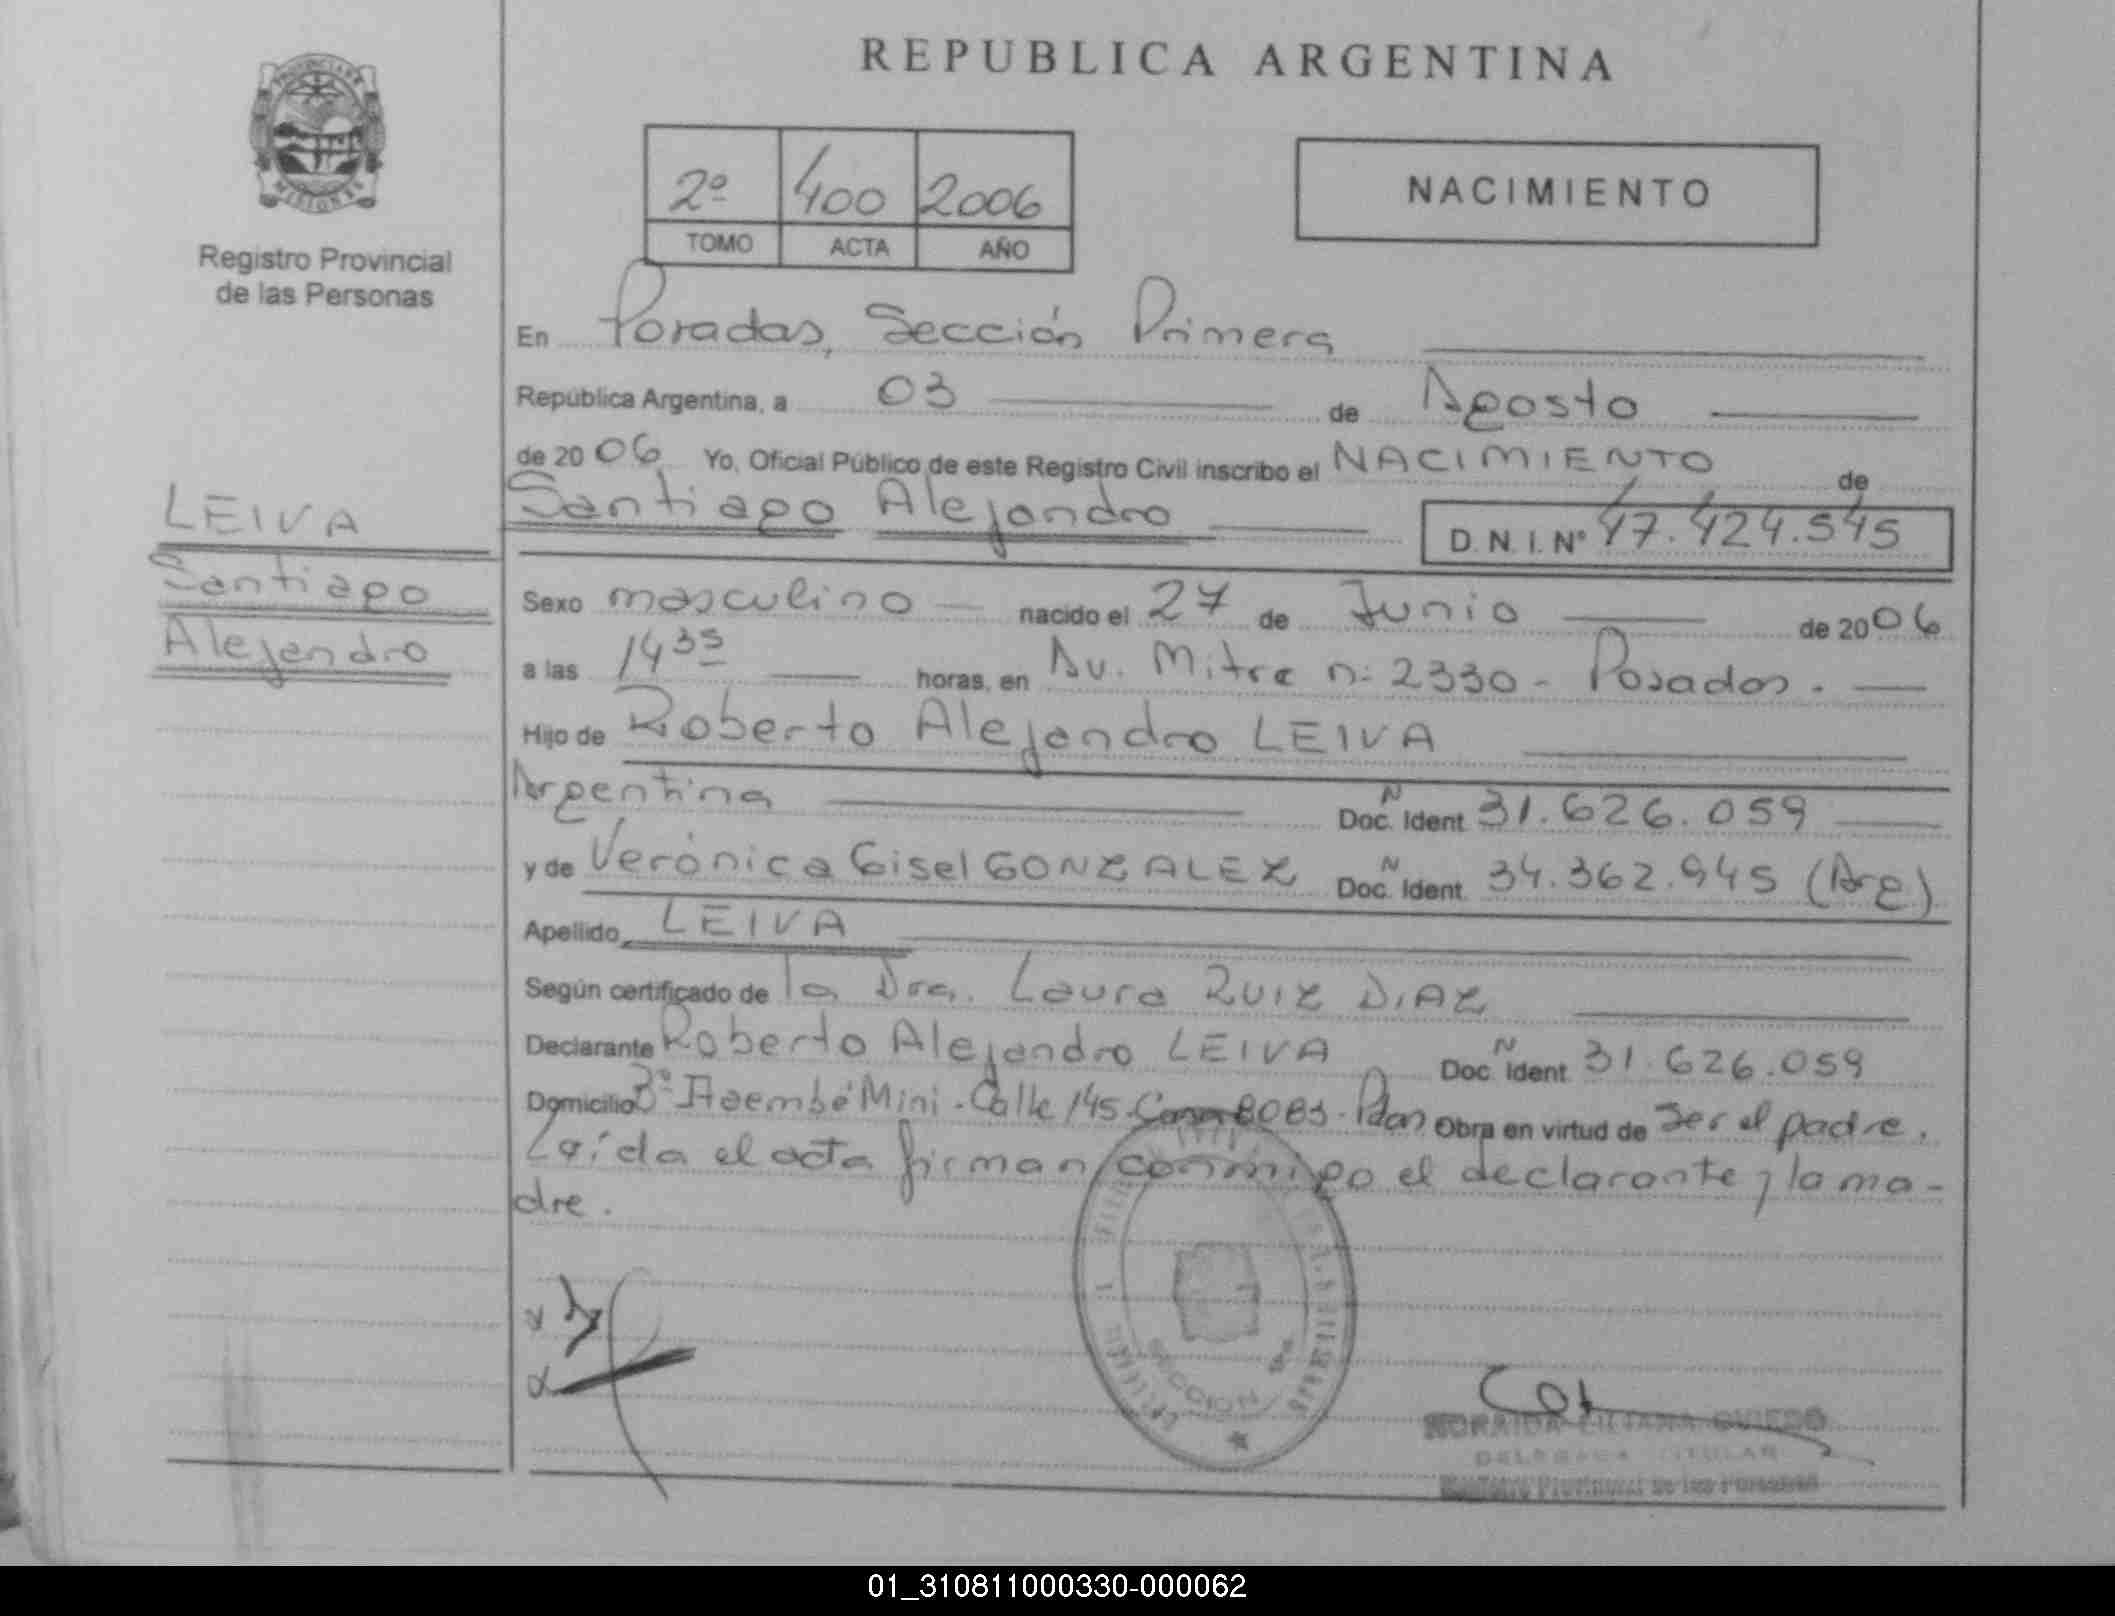 REPUBLICA ARGENTINA
PROVINCIA DE MISIONES
Registro Provincial
de las Personas
2º 400 2006
TOMO ACTA AÑO
NACIMIENTO
En Posadas, Sección Primera
República Argentina, a 03 de Agosto
de 2006 Yo, Oficial Público de este Registro Civil inscribo el NACIMIENTO de
Santiago Alejandro
D.N.I. Nº 47.424.545
LEIVA
Santiago
Alejandro
Sexo masculino nacido el 27 de Junio de 2006
a las 14 35 horas, en Av. Mitre n: 2330 - Posadas.
Hijo de Roberto Alejandro LEIVA
Argentina Doc. Ident. N 31.626.059
y de Verónica Gisel GONZALEZ Doc. Ident. N 34.362.945 (Arg)
Apellido LEIVA
Según certificado de la Dra. Laura RUIZ DIAZ
Declarante Roberto Alejandro LEIVA Doc. Ident. N 31.626.059
Domicilio Bº Itaembé Mini - Calle 145 - Casa - Pdas Obra en virtud de ser el padre.
Leída el acta firman conmigo el declarante y la ma-
dre.
SECCION
NORAIDA LILIANA OVIEDO
DELEGADA TITULAR
Registro Provincial de las Personas
01_310811000330-000062